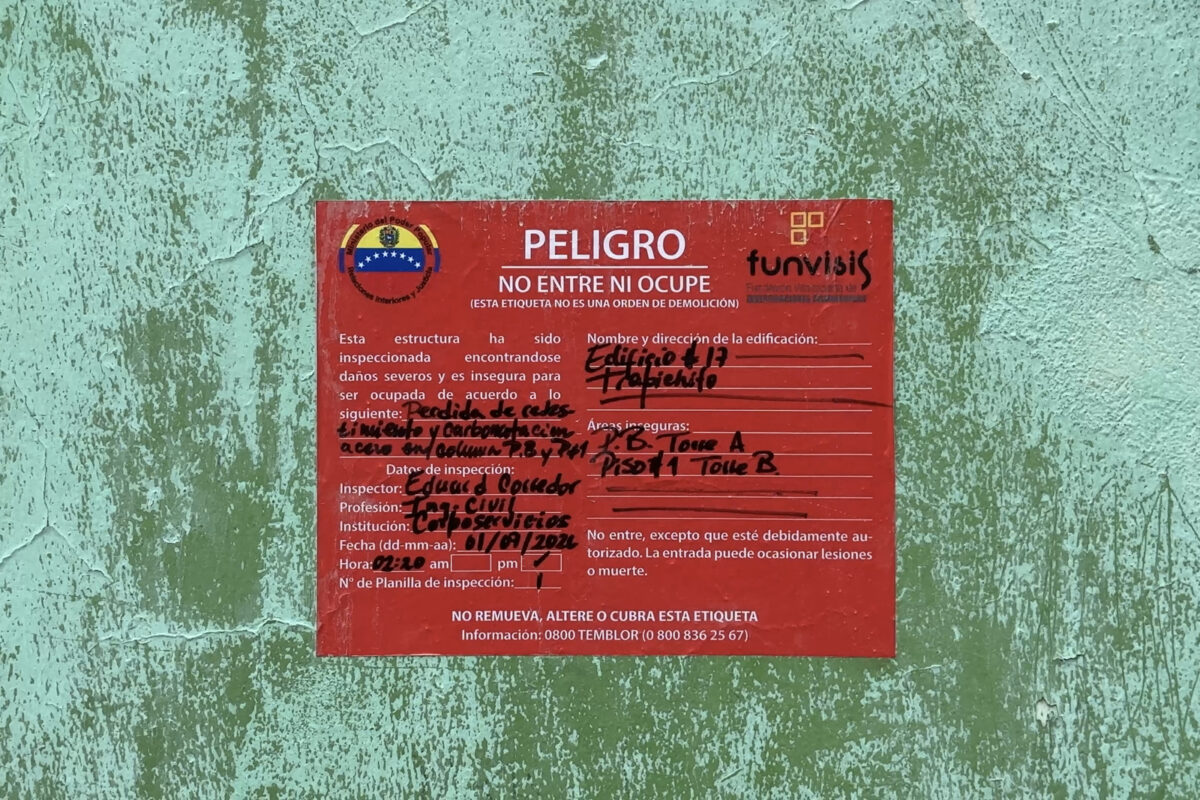 Ministerio del Poder Popular
Relaciones Interiores y Justicia
PELIGRO
NO ENTRE NI OCUPE
(ESTA ETIQUETA NO ES UNA ORDEN DE DEMOLICIÓN)
funvisis
Esta estructura ha sido
inspeccionada encontrandose
daños severos y es insegura para
ser ocupada de acuerdo a lo
siguiente: Perdida de
y Carbonatacion
acero en columna P.B y
Datos de inspección:
Inspector: Eduard Corredor
Profesión: Ing. Civil
Institución: Corposervicios
Fecha (dd-mm-aa):
Hora: 02:20 am pm ✓
N° de Planilla de inspección: 1
Nombre y dirección de la edificación:
Edificio # 17
Trapichito
Áreas inseguras:
P.B. Torre A
Piso #1 Torre B.
No entre, excepto que esté debidamente au-
torizado. La entrada puede ocasionar lesiones
o muerte.
NO REMUEVA, ALTERE O CUBRA ESTA ETIQUETA
Información: 0800 TEMBLOR (0 800 836 25 67)